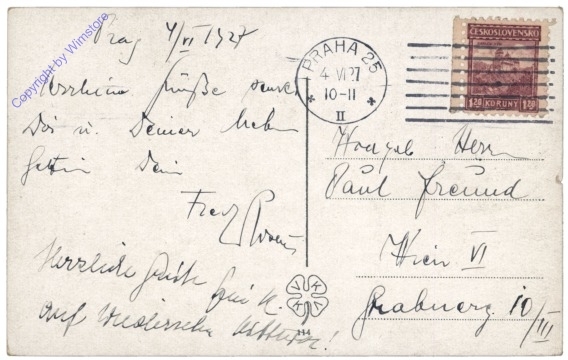 Copyright by Wimstore
Prag 4/VI 1927
Herzliche Grüße sendet
Dir u. Deiner lieben
Gattin Dein
Fred
Herzliche Grüße
auf Wiedersehn
PRAHA 25
4 VI 27
10-11
II
ČESKOSLOVENSKO
1.20 KORUNY 1.20
VKKV
Herrn
Paul Freund
Wien VI
10/III